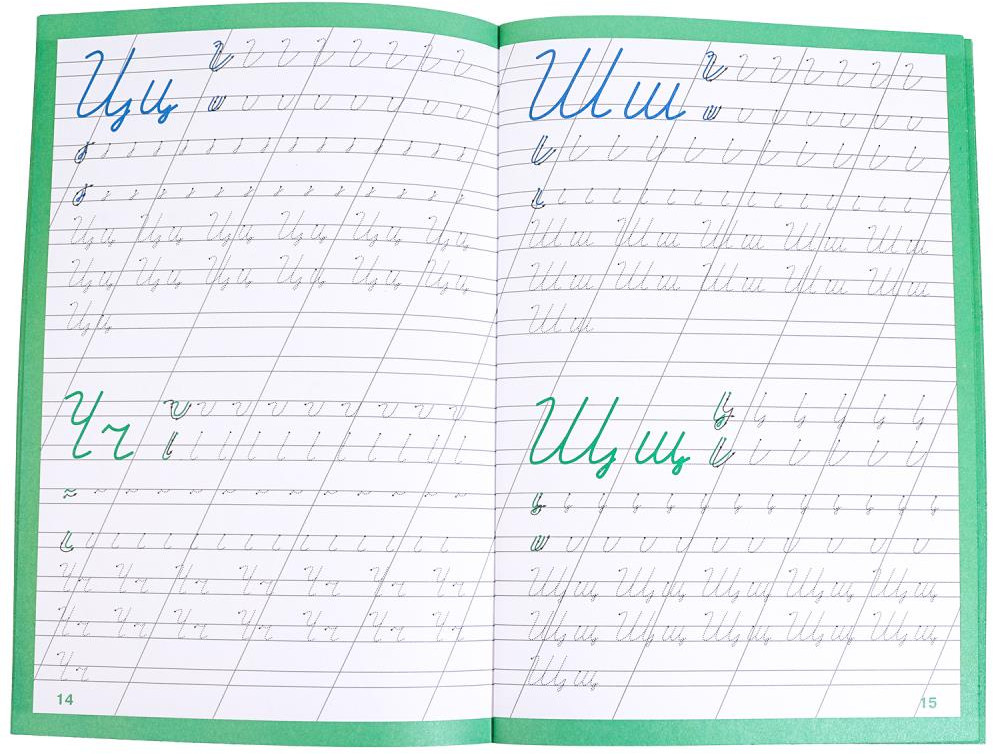 Ц ц
Цц Цц Цц Цц Цц Цц
Цц Цц Цц Цц Цц Цц
Цц
Ч ч
Чч Чч Чч Чч Чч Чч Чч
Чч Чч Чч Чч Чч Чч Чч
Чч
14
Ш ш
Шш Шш Шш Шш Шш
Шш Шш Шш Шш Шш
Шш
Щ щ
Щщ Щщ Щщ Щщ Щщ
Щщ Щщ Щщ Щщ Щщ
Щщ
15